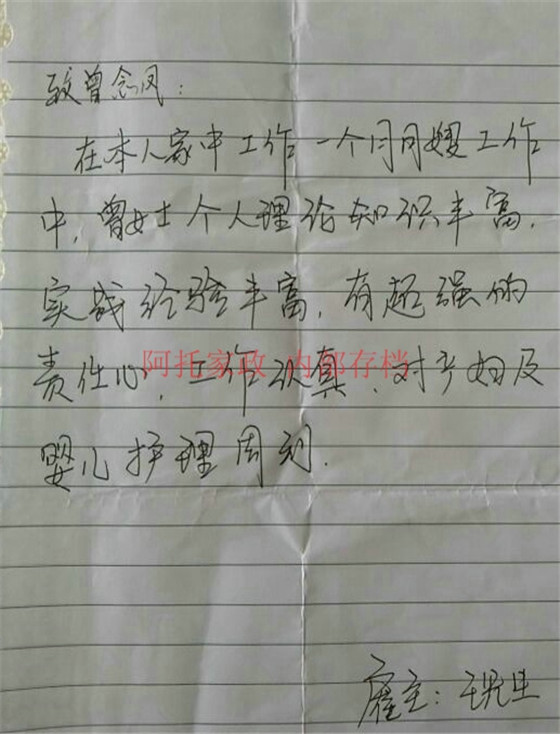 致曾念凤:
在本人家中工作一个月月嫂工作
中,曾女士个人理论知识丰富,
实战经验丰富,有超强的
责任心,工作认真,对产妇及
阿托家政 内部存档
婴儿护理周到.
雇主:王先生